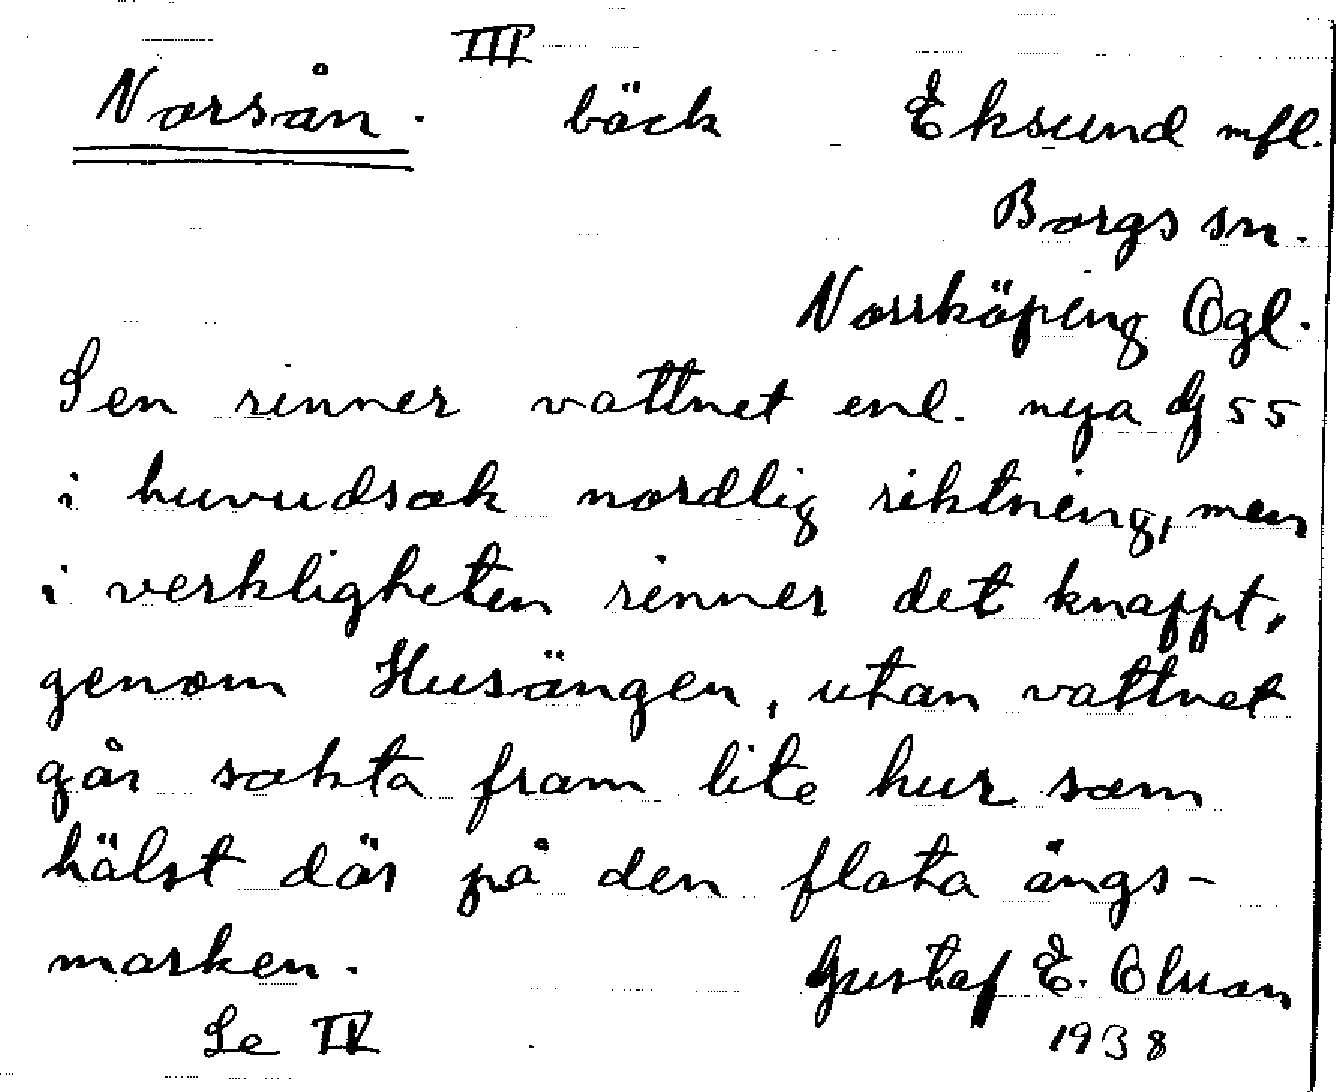 III
Norsån. bäck Eksund mfl.
Borgs sn.
Norrköping Ögl.
Sen rinner vattnet enl. nya dj 55
i huvudsak nordlig riktning, men
i verkligheten rinner det knappt,
genom Husängen, utan vattnet
går sakta fram lite hur som
hälst där på den flata ängs-
marken. Gustaf E. Olson
Se IV 1938